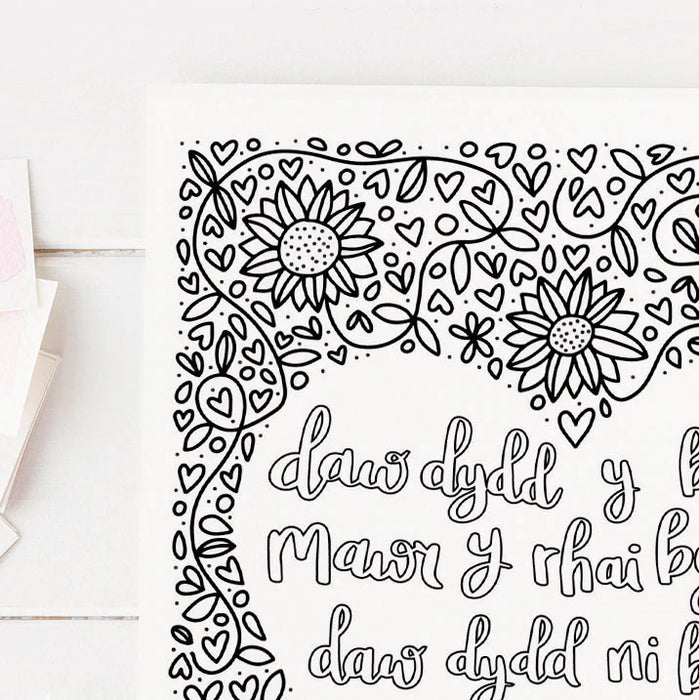 daw dydd y
Mawr y rhai
daw dydd ni